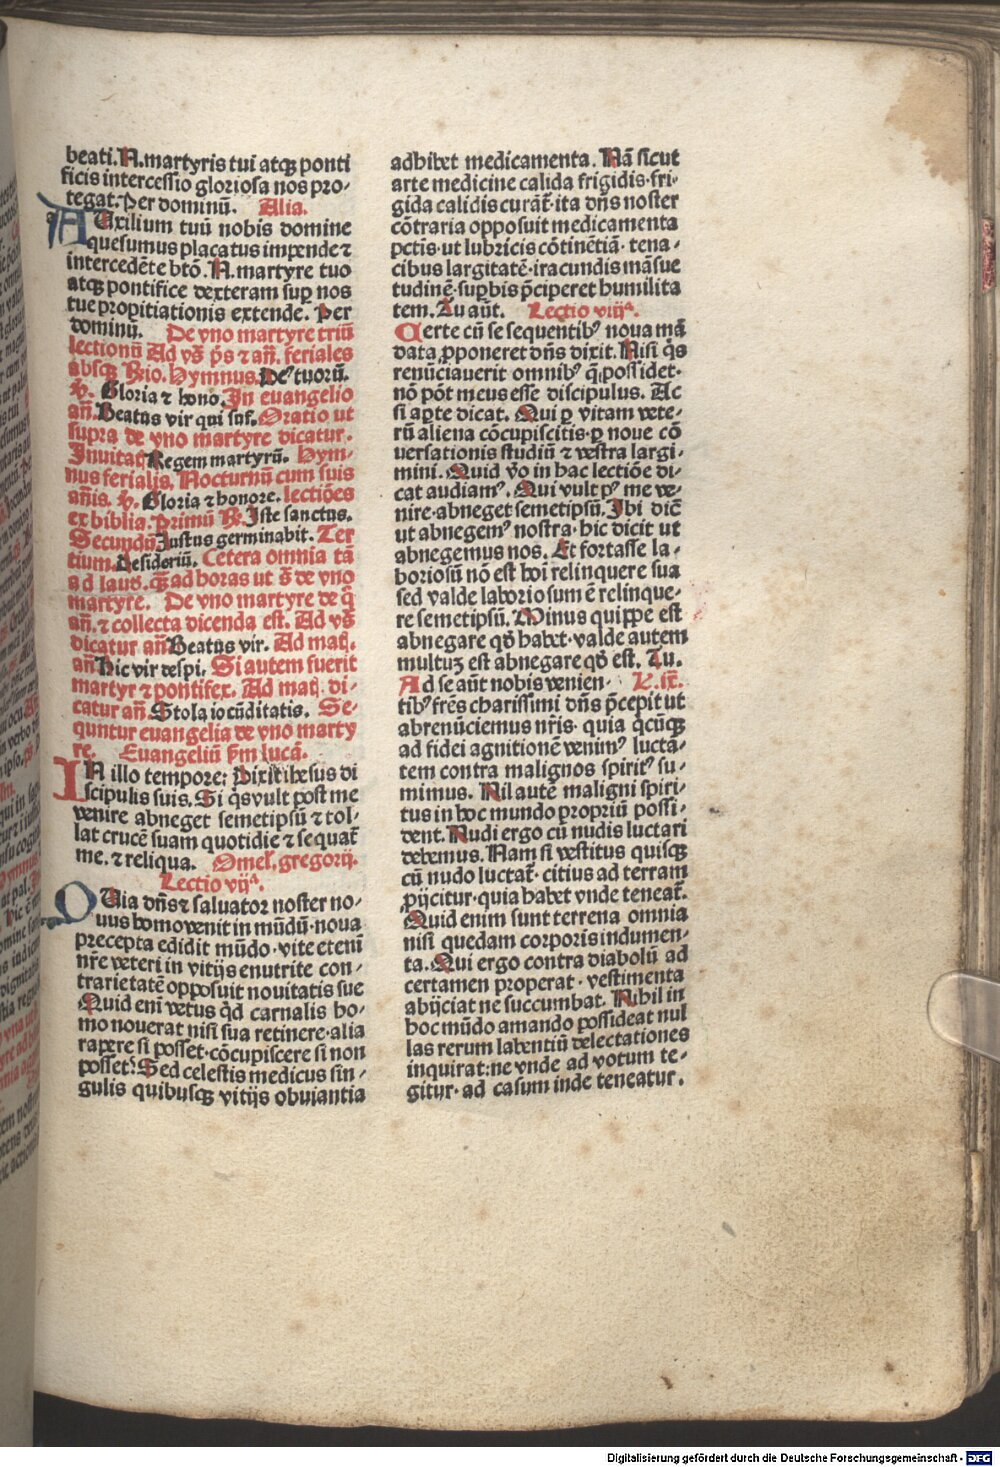 beati. N. martyris tui atqꝫ ponti
ficis intercessio gloriosa nos pro-
tegat. Per dominū. Alia.
AUxilium tuū nobis domine
quesumus placatus impende ⁊
intercedēte btō. N. martyre tuo
atqꝫ pontifice dexteram suꝑ nos
tue propitiationis extende. Per
dominū. De vno martyre triū
lectionū Ad vꝰs p̄s ⁊ añ. feriales
absqꝫ Rꝰio. Hymnus. Deꝰ tuorū.
v̄. Gloria ⁊ hono. In euangelio
añ. Beatus vir qui suf. Oratio ut
supra de vno martyre dicatur.
Inuitaꝗ Regem martyrū. Hym-
nus ferialis. Nocturnū cum suis
añis. v̄. Gloria ⁊ honore. lectiōes
ex biblia. Primū R̄. Iste sanctus.
Secundū Justus germinabit. Ter
tium. Desideriū. Cetera omnia tā
ad laud. ꝗ̄ ad horas ut s̄ de vno
martyre. De vno martyre de q̄
añ. ⁊ collecta dicenda est. Ad vꝰs
dicatur añ Beatus vir. Ad mag.
añ Hic vir despi. Si autem fuerit
martyr ⁊ pontifex. Ad mag. di-
catur añ. Stola iocūditatis. Se-
quntur euangelia de vno marty
re. Euangeliū s̄m lucā.
IN illo tempore: Dixit ihesus di
scipulis suis. Si q̄s vult post me
venire abneget semetipsū ⁊ tol-
lat crucē suam quotidie ⁊ sequat̄
me. ⁊ reliqua. Omel. gregorij.
Lectio vijᵃ.
QUia dn̄s ⁊ saluator noster no-
uus homo venit in mūdū· noua
precepta edidit mūdo· vite etenī
nr̄e veteri in vitijs enutrite con-
trarietatē opposuit nouitatis sue
Quid enī vetus q̄d carnalis ho-
mo nouerat nisi sua retinere· alia
rapere si posset· cōcupiscere si non
posset? Sed celestis medicus sin-
gulis quibusqꝫ vitijs obuiantia
adhibet medicamenta. Nā sicut
arte medicine calida frigidis· fri-
gida calidis curāt̄· ita dn̄s noster
cōtraria opposuit medicamenta
pctīs· ut lubricis cōtinētiā· tena-
cibus largitatē· iracundis māsue
tudinē· suꝑbis p̄ciperet humilita
tem. Tu aūt. Lectio viijᵃ.
Certe cū se sequentibꝰ noua mā
data ꝓponeret dn̄s dixit. Nisi q̄s
renūciauerit omnibꝰ q̄ possidet·
nō pōt meus esse discipulus. Ac
si aꝑte dicat. Qui ꝑ vitam vete-
rū aliena cōcupiscitis· ꝑ noue cō
uersationis studiū ⁊ vestra largi-
mini. Quid v̄o in hac lectiōe di-
cat audiamꝰ. Qui vult pꝰ me ve-
nire· abneget semetipsū. Ibi dic̄
ut abnegemꝰ nostra· hic dicit ut
abnegemus nos. Et fortasse la-
boriosū nō est hoī relinquere sua
sed valde laboriosum ē relinque-
re semetipsū. Minus quippe est
abnegare qd̄ habet· valde autem
multuꝫ est abnegare qd̄ est. Tu.
Ad se aūt nobis venien- L. ix.
tibꝰ fr̄es charissimi dn̄s p̄cepit ut
abrenūciemus nr̄is· quia q̄cūqꝫ
ad fidei agnitionē venimꝰ lucta-
tem contra malignos spiritꝰ su-
mimus. Nil autē maligni spiri-
tus in hoc mundo propriū possi-
dent. Nudi ergo cū nudis luctari
debemus. Nam si vestitus quisqꝫ
cū nudo luctat̄· citius ad terram
ꝓijcitur· quia habet vnde teneat̄.
Quid enim sunt terrena omnia
nisi quedam corporis indumen-
ta. Qui ergo contra diabolū ad
certamen properat· vestimenta
abijciat ne succumbat. Nihil in
hoc mūdo amando possideat nul
las rerum labentiū delectationes
inquirat: ne vnde ad votum te-
gitur· ad casum inde teneatur.
Digitalisierung gefördert durch die Deutsche Forschungsgemeinschaft - DFG